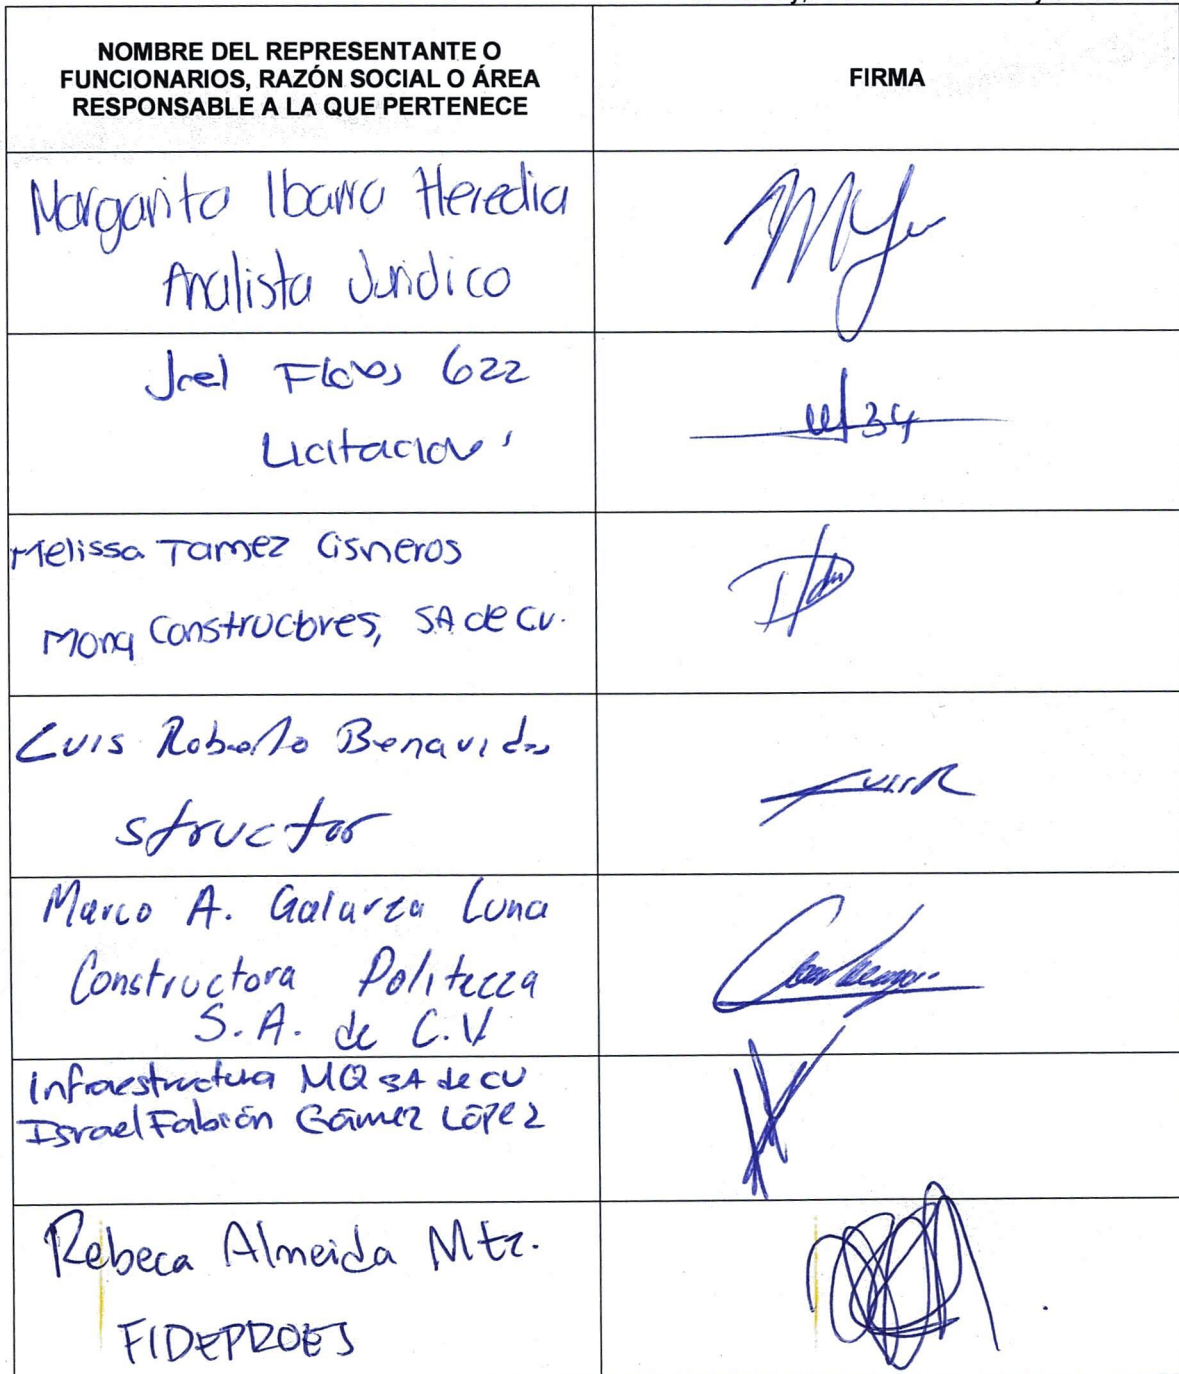 NOMBRE DEL REPRESENTANTE O
FUNCIONARIOS, RAZÓN SOCIAL O ÁREA
RESPONSABLE A LA QUE PERTENECE
FIRMA
Margarita Ibarra Heredia
Analista Jurídico
Joel Flores 622
Licitacion
Melissa Tamez Cisneros
Constructores, SA de CV.
Luis Roberto Benavides
structor
Marco A. Galarza Luna
Constructora Politezza
S.A. de C.V
Infraestructura MQ SA de CV
Israel Fabián Gámez López
Rebeca Almeida Mtz.
FIDEPROES